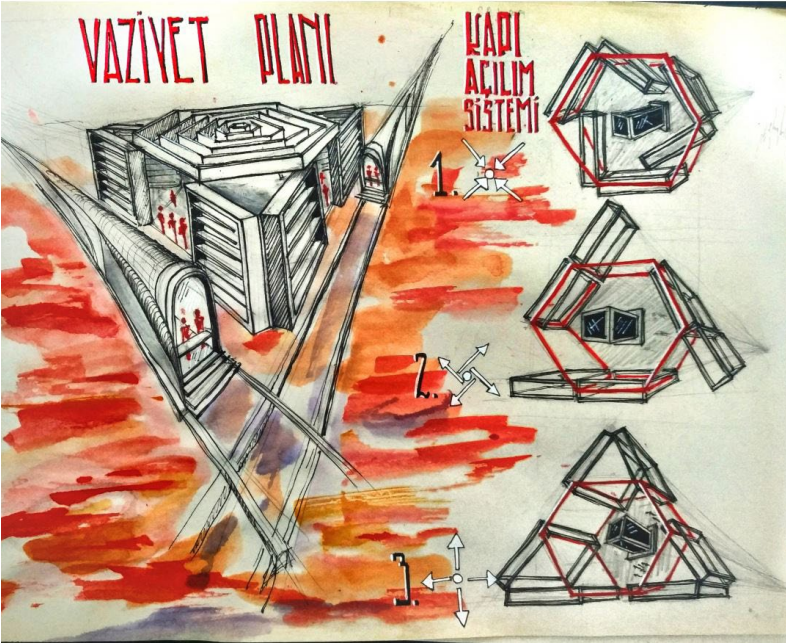 VAZİYET PLANI
KAPI
AÇILIM
SİSTEMİ
1.
2.
3.